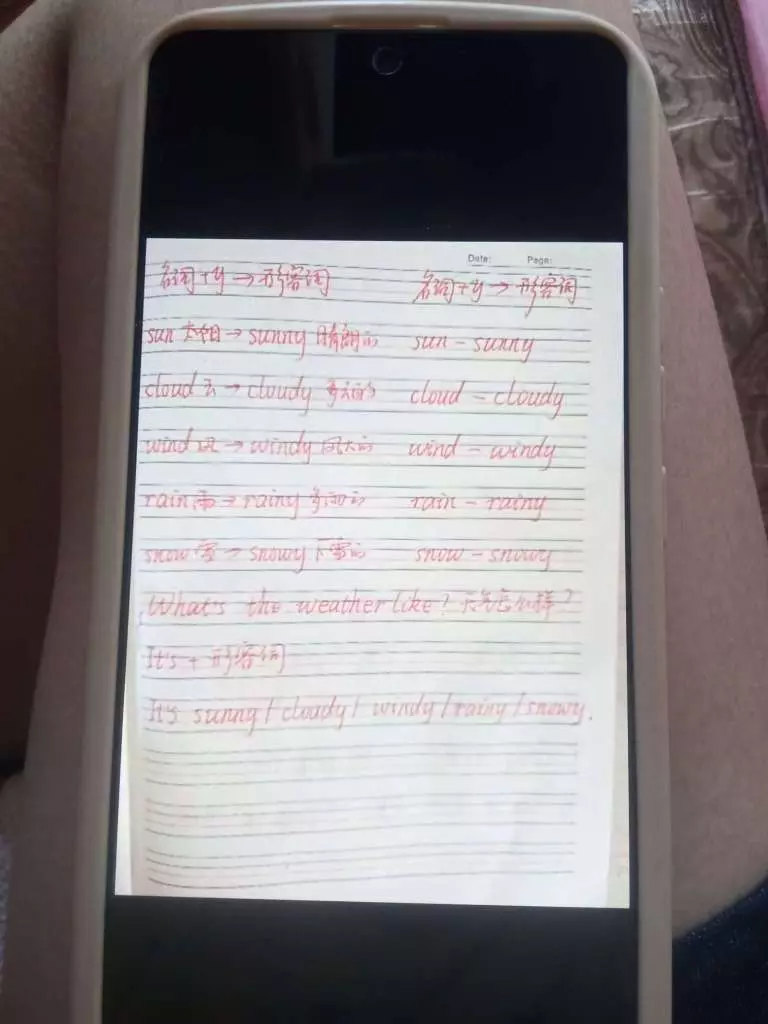 Date: Page:
名词+y→形容词 名词+y→形容词
sun 太阳→sunny 晴朗的 sun-sunny
cloud 云→cloudy 多云的 cloud-cloudy
wind 风→windy 风大的 wind-windy
rain 雨→rainy 多雨的 rain-rainy
snow 雪→snowy 下雪的 snow-snowy
What's the weather like? 天气怎么样?
It's + 形容词
It's sunny/cloudy/windy/rainy/snowy.